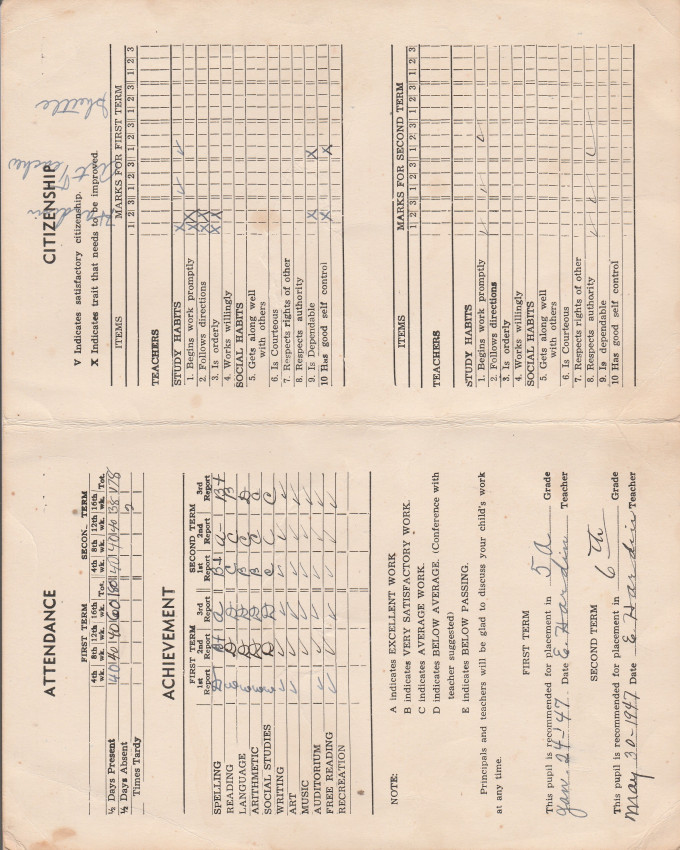 ATTENDANCE
FIRST TERM SECON TERM
4th wk. 8th wk. 12th wk. 16th wk. Tot. 4th wk. 8th wk. 12th wk. 16th wk. Tot.
½ Days Present 40 40 40 40 40 38
½ Days Absent 2
Times Tardy
ACHIEVEMENT
FIRST TERM SECOND TERM
1st Report 2nd Report 3rd Report 1st Report 2nd Report 3rd Report
SPELLING B+ a B+ a- B+
READING D D C C B
LANGUAGE D D B C D
ARITHMETIC D D B C C
SOCIAL STUDIES D D C C C
WRITING ✓ ✓ ✓ ✓ ✓ ✓
ART ✓ ✓ ✓ ✓ ✓
MUSIC ✓ ✓ ✓ ✓
AUDITORIUM ✓ ✓ ✓ ✓ ✓ ✓
FREE READING ✓ ✓ ✓ ✓ ✓ ✓
RECREATION
NOTE: A indicates EXCELLENT WORK
B indicates VERY SATISFACTORY WORK.
C indicates AVERAGE WORK.
D indicates BELOW AVERAGE. (Conference with
teacher suggested)
E indicates BELOW PASSING.
Principals and teachers will be glad to discuss your child's work
at any time.
FIRST TERM
This pupil is recommended for placement in 5A Grade
Jan. 24-47. Date E. Hardin Teacher
SECOND TERM
This pupil is recommended for placement in 6th Grade
May 30-1947 Date E. Hardin Teacher
CITIZENSHIP
V Indicates satisfactory citizenship.
X Indicates trait that needs to be improved.
Hardin
Art Teacher
ITEMS MARKS FOR FIRST TERM
1 2 3 1 2 3 1 2 3 1 2 3 1 2 3
TEACHERS
STUDY HABITS X ✓ ✓
1. Begins work promptly X X
2. Follows directions X X
3. Is orderly X X
4. Works willingly
SOCIAL HABITS
5. Gets along well
with others
6. Is Courteous
7. Respects rights of other
8. Respects authority
9. Is Dependable X X
10 Has good self control X X
ITEMS MARKS FOR SECOND TERM
1 2 3 1 2 3 1 2 3 1 2 3 1 2 3
TEACHERS
STUDY HABITS
1. Begins work promptly ✓
2. Follows directions
3. Is orderly
4. Works willingly
SOCIAL HABITS
5. Gets along well
with others
6. Is Courteous
7. Respects rights of other
8. Respects authority ✓ ✓
9. Is dependable
10 Has good self control